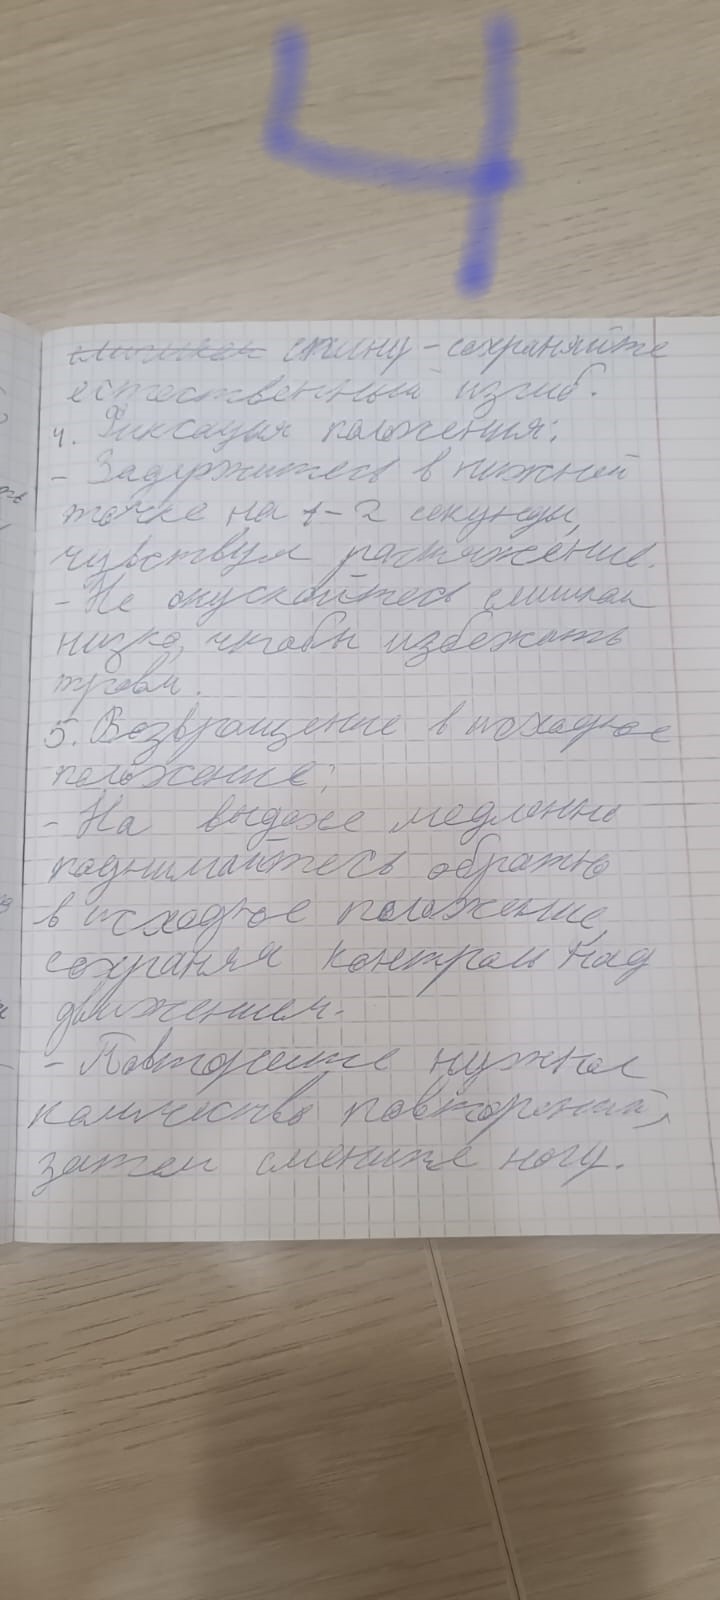 4
слишком спину - сохраняйте
естественный изгиб.
4. Фиксация положения:
- Задержитесь в нижней
точке на 1-2 секунды,
чувствуя растяжение.
- Не опускайтесь слишком
низко, чтобы избежать
травм.
5. Возвращение в исходное
положение:
- На выдохе медленно
поднимайтесь обратно
в исходное положение,
сохраняя контроль над
движением.
- Повторите нужное
количество повторений,
затем смените ногу.